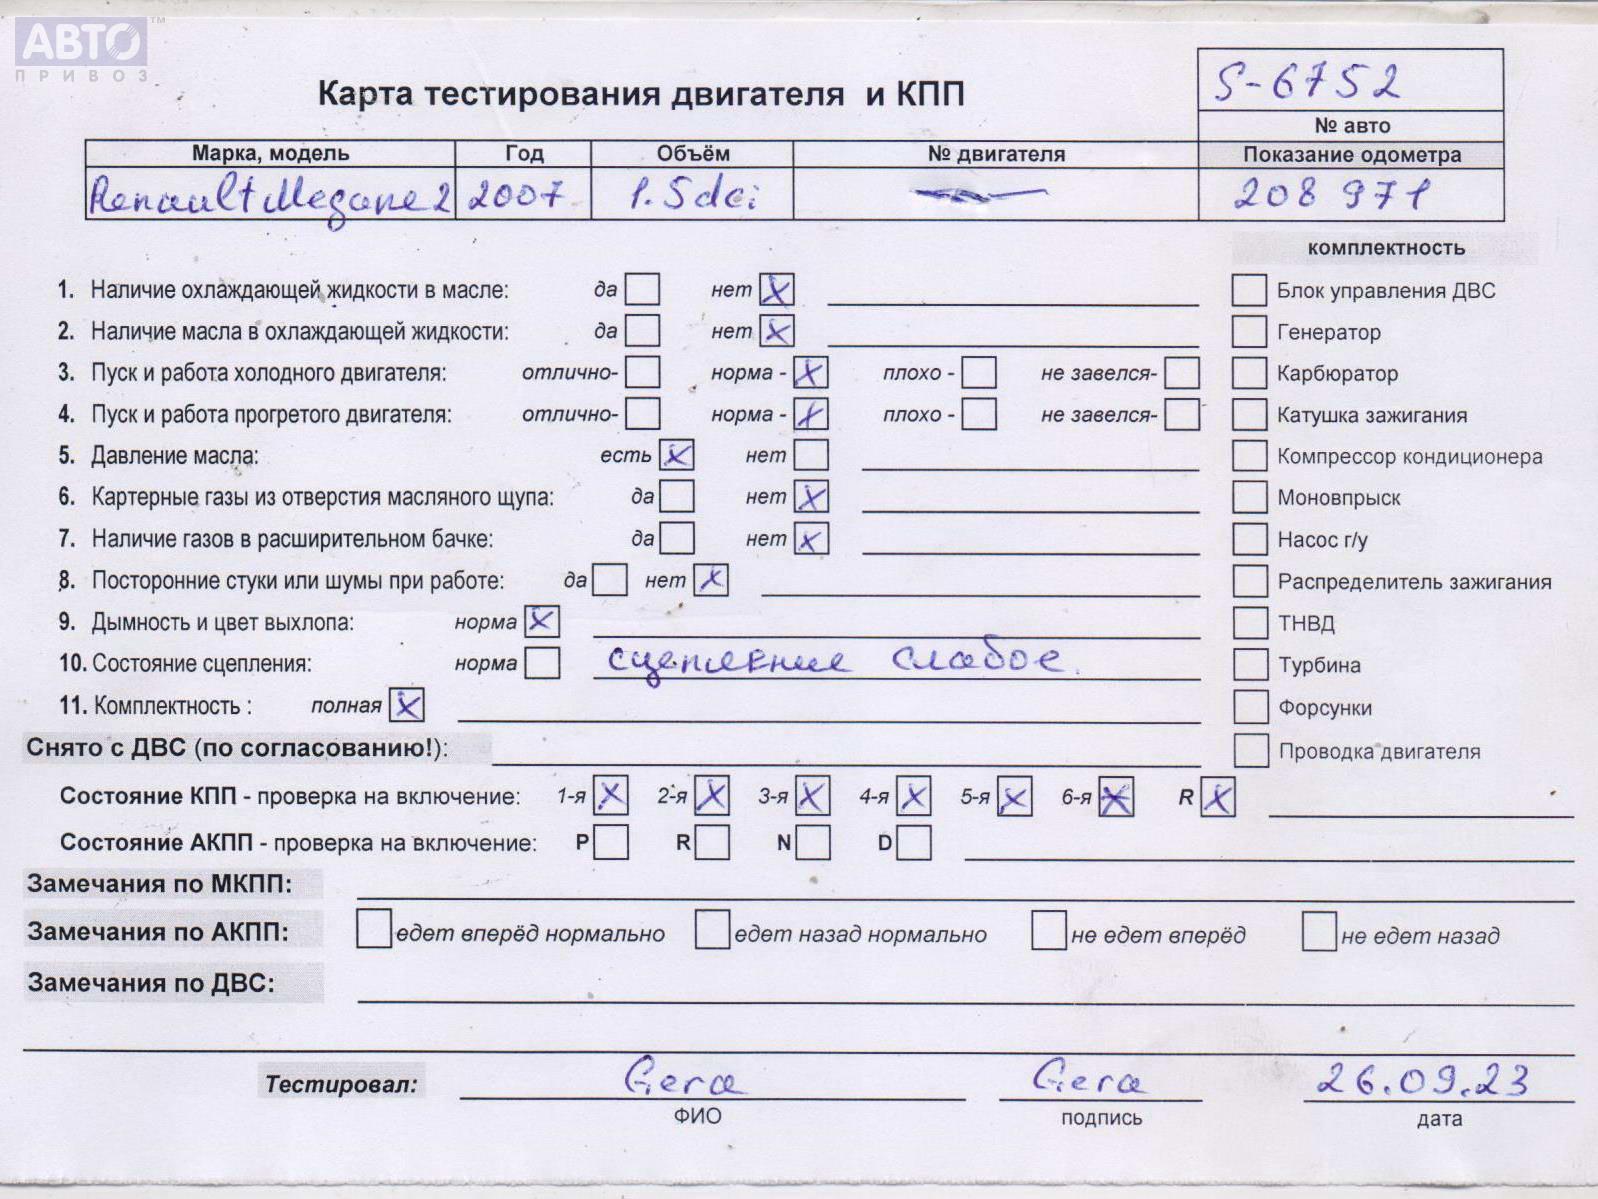 АВТО™
ПРИВОЗ
S-6752
Карта тестирования двигателя и КПП
№ авто
Марка, модель Год Объём № двигателя Показание одометра
Renault Megane 2 2007 1.5dci 208 971
комплектность
1. Наличие охлаждающей жидкости в масле: да нет X Блок управления ДВС
2. Наличие масла в охлаждающей жидкости: да нет X Генератор
3. Пуск и работа холодного двигателя: отлично- норма - X плохо - не завелся- Карбюратор
4. Пуск и работа прогретого двигателя: отлично- норма - X плохо - не завелся- Катушка зажигания
5. Давление масла: есть X нет Компрессор кондиционера
6. Картерные газы из отверстия масляного щупа: да нет X Моновпрыск
7. Наличие газов в расширительном бачке: да нет X Насос г/у
8. Посторонние стуки или шумы при работе: да нет X Распределитель зажигания
9. Дымность и цвет выхлопа: норма X ТНВД
10. Состояние сцепления: норма сцепление слабое. Турбина
11. Комплектность : полная X Форсунки
Снято с ДВС (по согласованию!): Проводка двигателя
Состояние КПП - проверка на включение: 1-я X 2-я X 3-я X 4-я X 5-я X 6-я X R X
Состояние АКПП - проверка на включение: P R N D
Замечания по МКПП:
Замечания по АКПП: едет вперёд нормально едет назад нормально не едет вперёд не едет назад
Замечания по ДВС:
Тестировал: Gera Gera 26.09.23
ФИО подпись дата